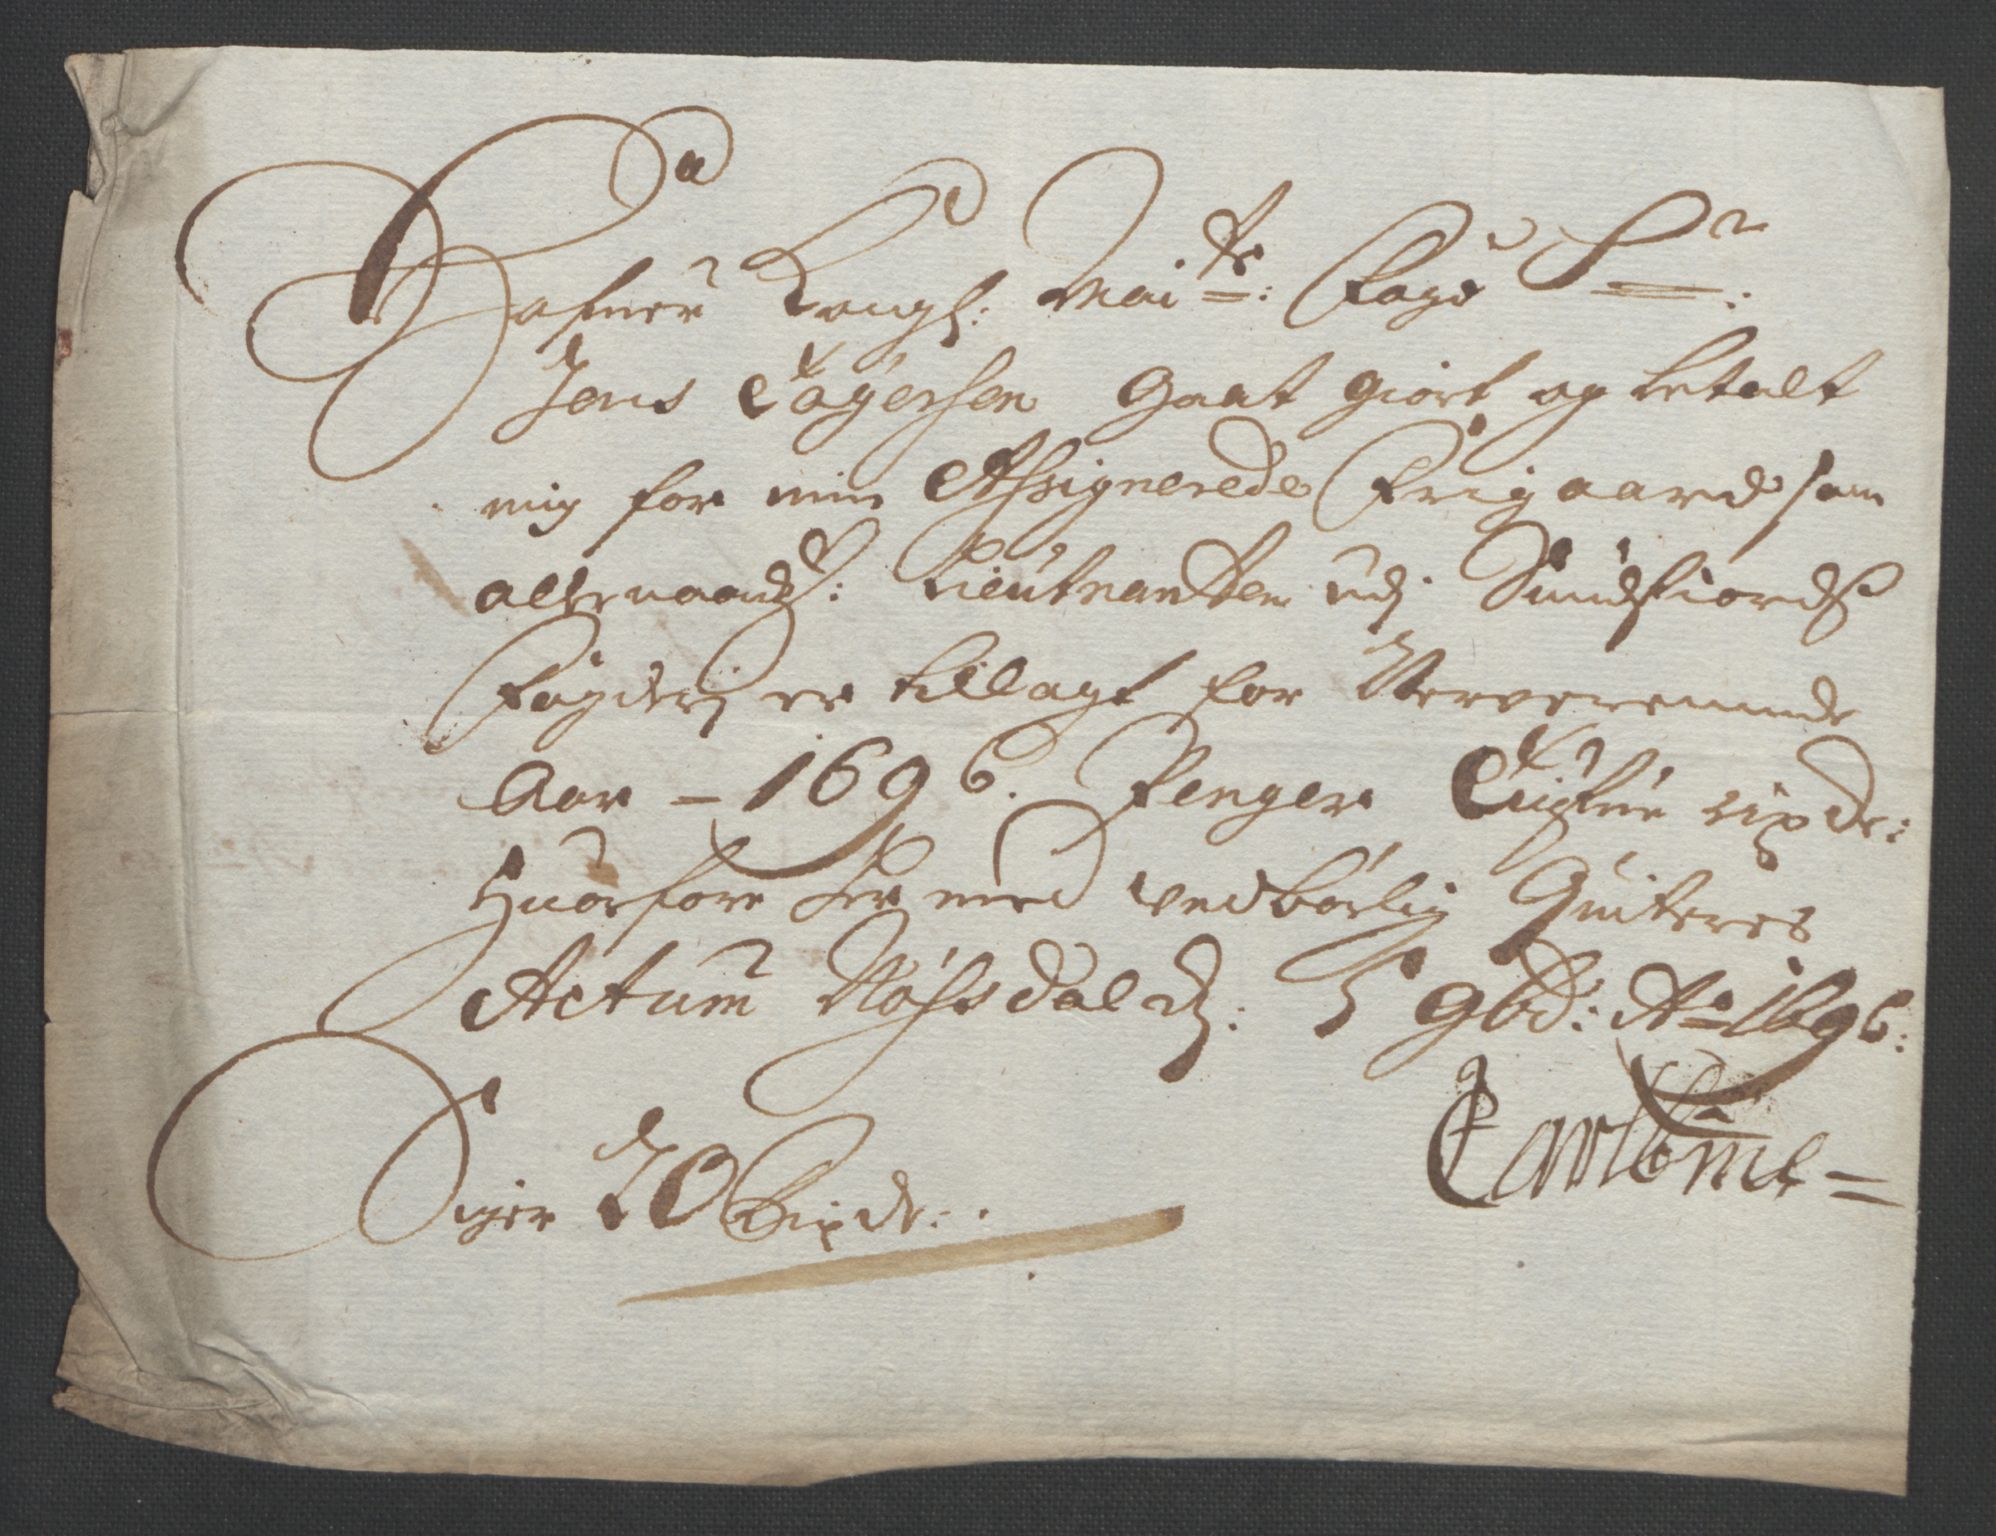 Hafuer Kongl: Maits: Foged Sr:
Jens Legersen gaat giort og betalt
mig for min Assignerede Frigaard som
allernaadgst: Lieutnanten udj Sundfiords
Fogderj er tillagt for Nerværennde
Aar – 1696. Penger Tiufue rixdr:
Huorfore her med vedbørlig Quiteres
Actum Røssdald: 5 9bd: Ao 1696:
Siger 20 Rixdr: